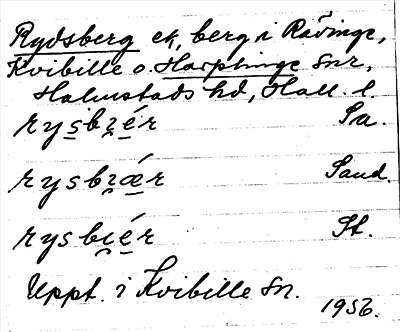 Rydsberg ek, berg i Råvinge,
Kvibille o. Harplinge snr,
Halmstads hd, Hall. l.
rysbɩ̯ér Sa.
rysbɩ̯ǽr Sand.
rysbɩ̯ér St.
Uppt. i Kvibille sn.
1956.